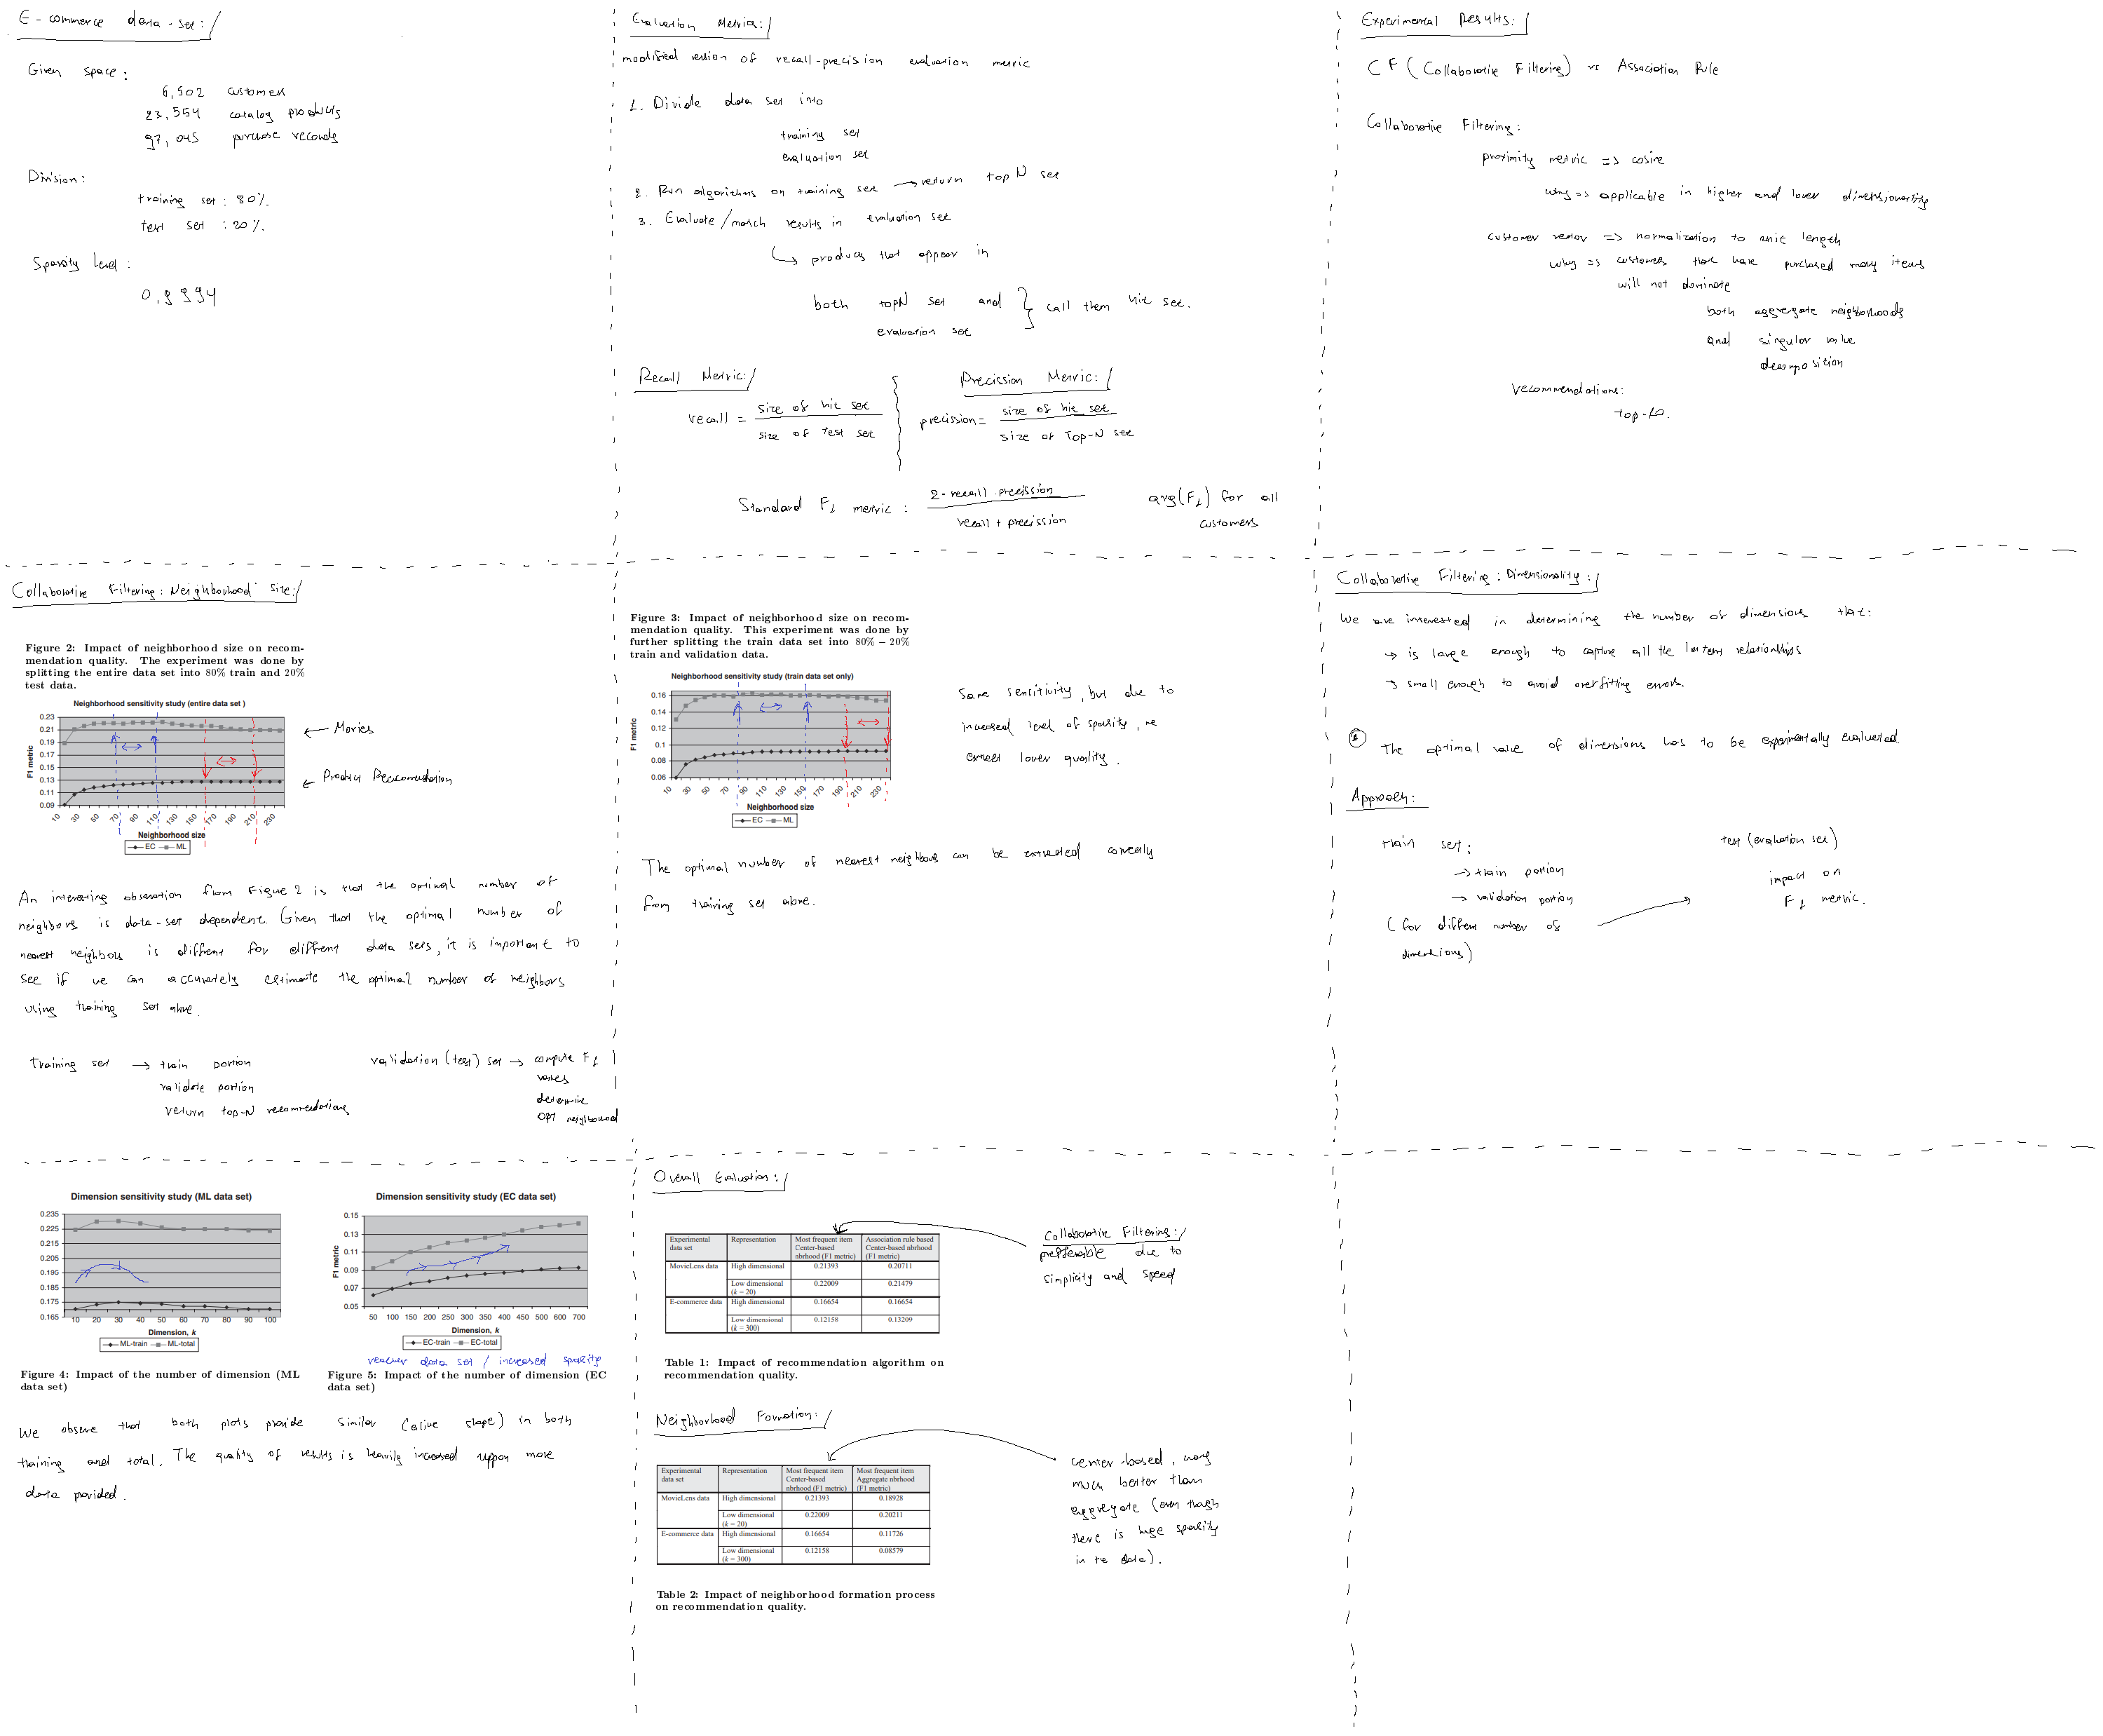 E-commerce data-set:
Given space:
6,502 customers
23,554 catalog products
97,045 purchase records
Division:
training set: 80%.
test set: 20%.
Sparsity level:
0,9994
Evaluation Metrics:
modified version of recall-precision evaluation metric
1. Divide data set into
training set
evaluation set
2. Run algorithms on training set → return top N set
3. Evaluate/match results in evaluation set
products that appear in
both topN set and
evaluation set
call them hit set.
Recall Metric:
recall = size of hit set
size of test set
Precission Metric:
precission = size of hit set
size of Top-N set
Standard F1 metric: 2·recall·precission
recall + precission
avg(F1) for all
customers
Experimental Results:
CF (Collaborative Filtering) vs Association Rule
Collaborative Filtering:
proximity metric => cosine
why => applicable in higher and lower dimensionality
customer vector => normalization to unit length
why => customers that have purchased many items
will not dominate
both aggregate neighborhoods
and singular value
decomposition
recommendations:
top-10.
Collaborative Filtering: Neighborhood size:
Figure 2: Impact of neighborhood size on recom-
mendation quality. The experiment was done by
splitting the entire data set into 80% train and 20%
test data.
Neighborhood sensitivity study (entire data set )
F1 metric
0.23
0.21
0.19
0.17
0.15
0.13
0.11
0.09
10 30 50 70 90 110 130 150 170 190 210 230
Neighborhood size
EC ML
← Movies
← Product Reccomendation
An interesting observation from Figure 2 is that the optimal number of
neighbors is data-set dependent. Given that the optimal number of
nearest neighbors is different for different data sets, it is important to
see if we can accurately estimate the optimal number of neighbors
using training set alone.
Training set → train portion
validate portion
return top-N recommendations
validation (test) set → compute F1
values
determine
OPT neighborhood
Figure 3: Impact of neighborhood size on recom-
mendation quality. This experiment was done by
further splitting the train data set into 80% – 20%
train and validation data.
Neighborhood sensitivity study (train data set only)
F1 metric
0.16
0.14
0.12
0.1
0.08
0.06
10 30 50 70 90 110 130 150 170 190 210 230
Neighborhood size
EC ML
Same sensitivity, but due to
increased level of sparsity, we
expect lower quality.
The optimal number of nearest neighbors can be extracted correctly
from training set alone.
Collaborative Filtering: Dimensionality:
We are interested in determining the number of dimensions that:
→ is large enough to capture all the latent relationships
→ small enough to avoid overfitting errors.
The optimal value of dimensions has to be experimentally evaluated.
Approach:
train set:
→ train portion
→ validation portion
(for different number of
dimensions)
test (evaluation set)
impact on
F1 metric.
Dimension sensitivity study (ML data set)
0.235
0.225
0.215
0.205
0.195
0.185
0.175
0.165
10 20 30 40 50 60 70 80 90 100
Dimension, k
ML-train ML-total
Figure 4: Impact of the number of dimension (ML
data set)
Dimension sensitivity study (EC data set)
F1 metric
0.15
0.13
0.11
0.09
0.07
0.05
50 100 150 200 250 300 350 400 450 500 600 700
Dimension, k
EC-train EC-total
data set / increased sparsity
Figure 5: Impact of the number of dimension (EC
data set)
We observe that both plots provide similar slope) in both
training and total. The quality of results is heavily increased uppon more
data provided.
Overall Evaluation:
Experimental data set Representation Most frequent item Center-based nbrhood (F1 metric) Association rule based Center-based nbrhood (F1 metric)
MovieLens data High dimensional 0.21393 0.20711
Low dimensional (k = 20) 0.22009 0.21479
E-commerce data High dimensional 0.16654 0.16654
Low dimensional (k = 300) 0.12158 0.13209
Table 1: Impact of recommendation algorithm on
recommendation quality.
Collaborative Filtering:
prefferable due to
simplicity and speed
Neighborhood Formation:
Experimental data set Representation Most frequent item Center-based nbrhood (F1 metric) Most frequent item Aggregate nbrhood (F1 metric)
MovieLens data High dimensional 0.21393 0.18928
Low dimensional (k = 20) 0.22009 0.20211
E-commerce data High dimensional 0.16654 0.11726
Low dimensional (k = 300) 0.12158 0.08579
Table 2: Impact of neighborhood formation process
on recommendation quality.
center-based, way
much better than
aggregate (even though
there is huge sparsity
in te data).